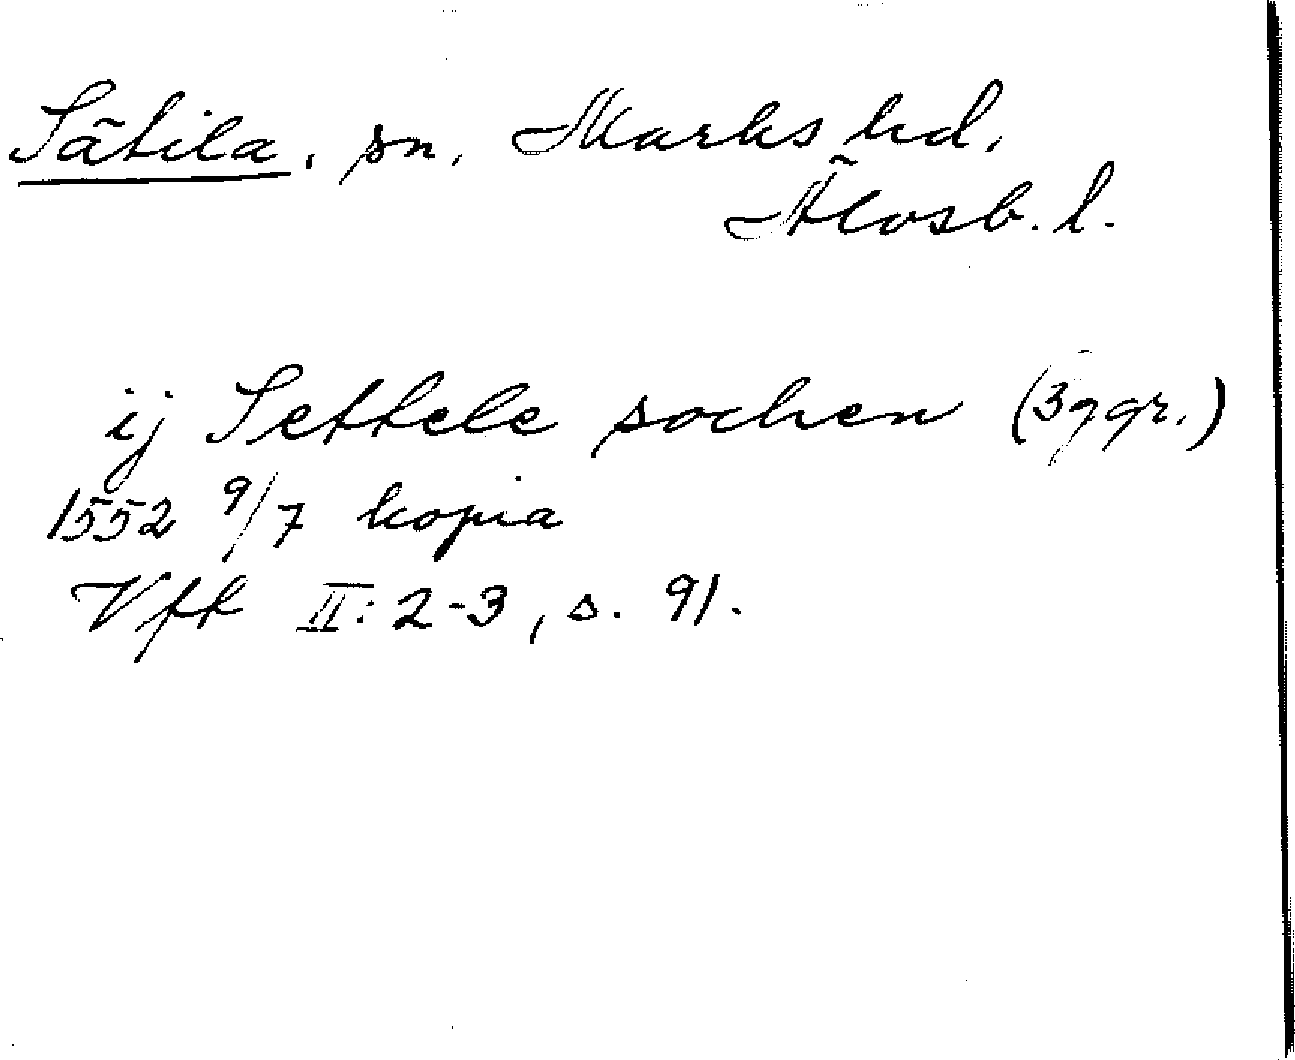 Sätila, sn, Marks hd,
Älvsb. l.
ij Settele sochen (3 ggr.)
1552 9/7 kopia
Vfl II: 2-3, s. 91.